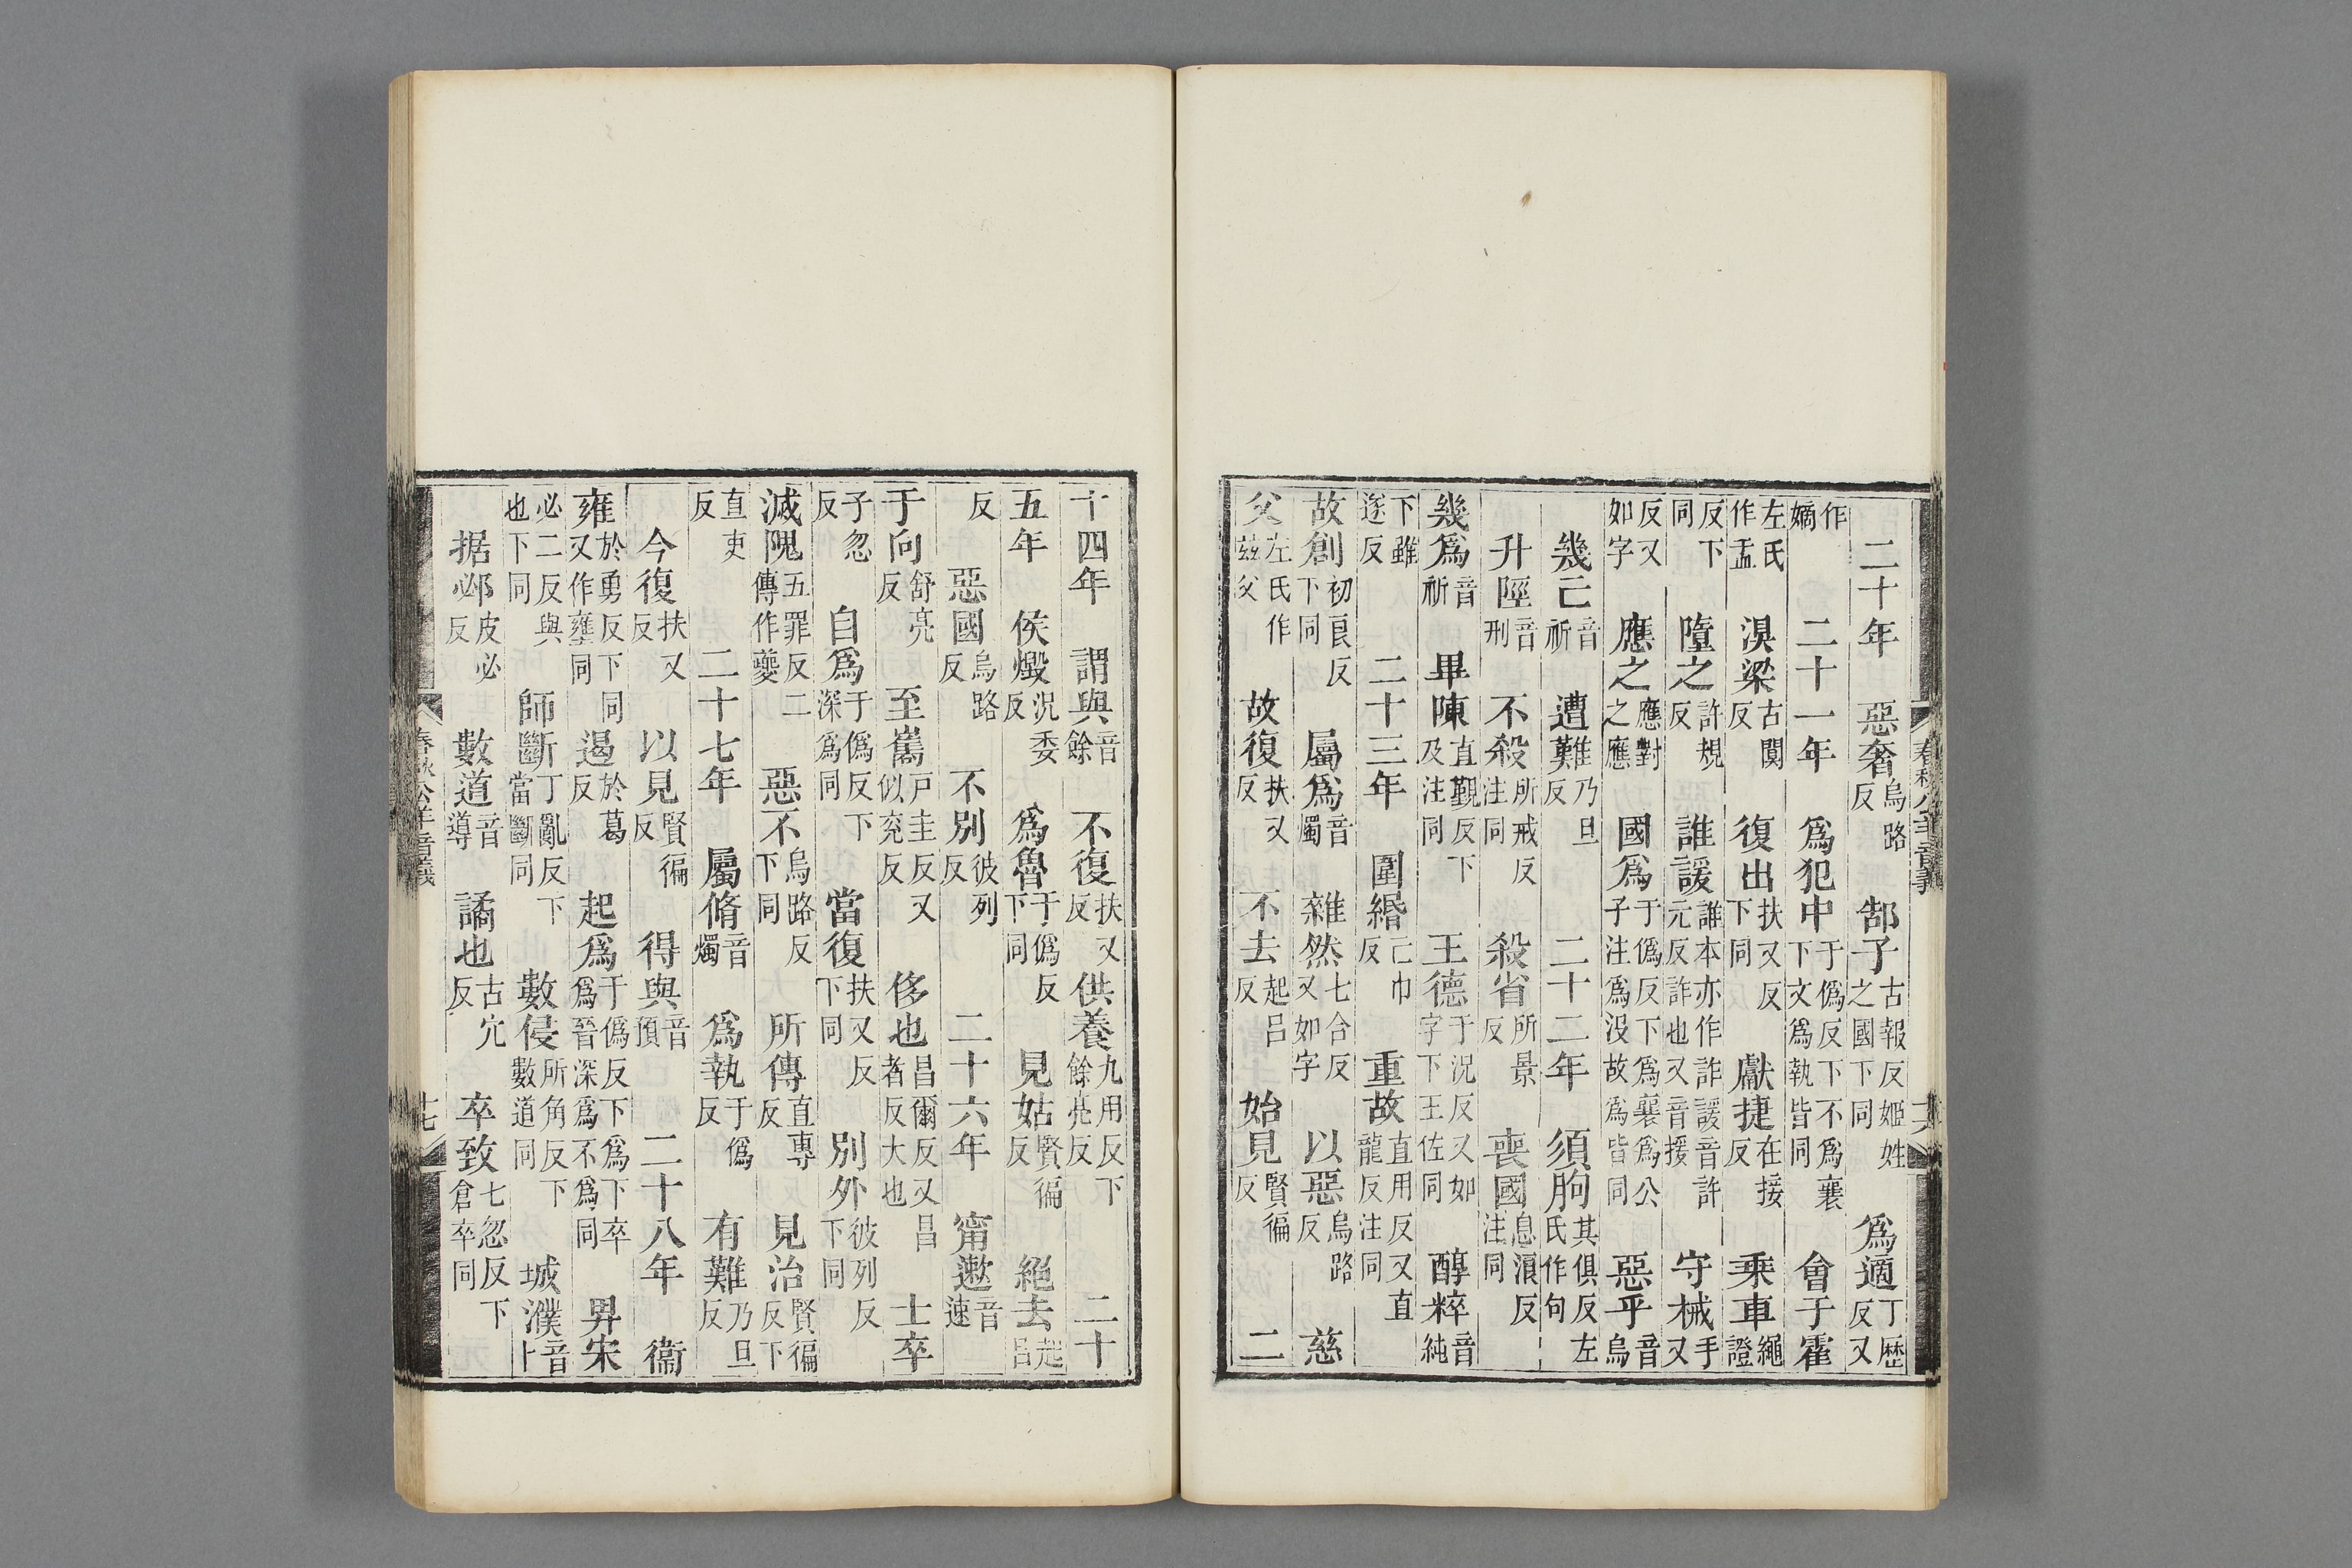 春秋公羊音義　十六
二十年　惡奢烏路反　郜子古報反姬姓之國下同　爲適丁歷反又
作嫡　二十一年　爲犯中于僞反下不爲襄下文爲執皆同　會于霍
左氏作盂　湨梁古闃反　復出扶又反下同　獻捷在接反　乗車繩證
反下同　墮之許規反　誰諼誰本亦作詐諼音許元反詐也又音援　守械手又
反又如字　應之應對之應　國爲于僞反下爲襄爲公子注爲没故爲皆同　惡乎音烏
幾已音祈　遭難乃旦反　二十二年　須朐其俱反左氏作句
升陘音刑　不殺所戒反注同　殺省所景反　喪國息浪反注同
幾爲音祈　畢陳直覲反下及注同　王德于況反又如字下王佐同　醇粹音純
下雖遂反　二十三年　圍緡亡巾反　重故直用反又直龍反注同
故創初良反下同　屬爲音燭　雜然七合反又如字　以惡烏路反　慈
父左氏作兹父　故復扶又反　不去起呂反　始見賢徧反　二
十四年　謂與音餘　不復扶又反　供養九用反下餘亮反　二十
五年　侯燬況委反　爲魯于僞反下同　見姑賢徧反　絕去起呂
反　惡國烏路反　不別彼列反　二十六年　甯遬音速
于向舒亮反　至巂戶圭反又似兖反　侈也昌爾反又昌者反大也　士卒
子忽反　自爲于僞反下深爲同　當復扶又反下同　別外彼列反下同
滅隗五罪反二傳作夔　惡不烏路反下同　所傳直專反　見治賢徧反下
直吏反　二十七年　屬脩音燭　爲執于僞反　有難乃旦反
今復扶又反　以見賢徧反　得與音預　二十八年　衞
雍於勇反下同又作壅同　遏於葛反　起爲于僞反下爲下卒爲晉深爲不爲同　畀宋
必二反與也下同　師斷丁亂反下當斷同　數侵所角反下數道同　城濮音卜
据邲皮必反　數道音導　譎也古穴反　卒致七忽反下倉卒同
春秋公羊音義　十七